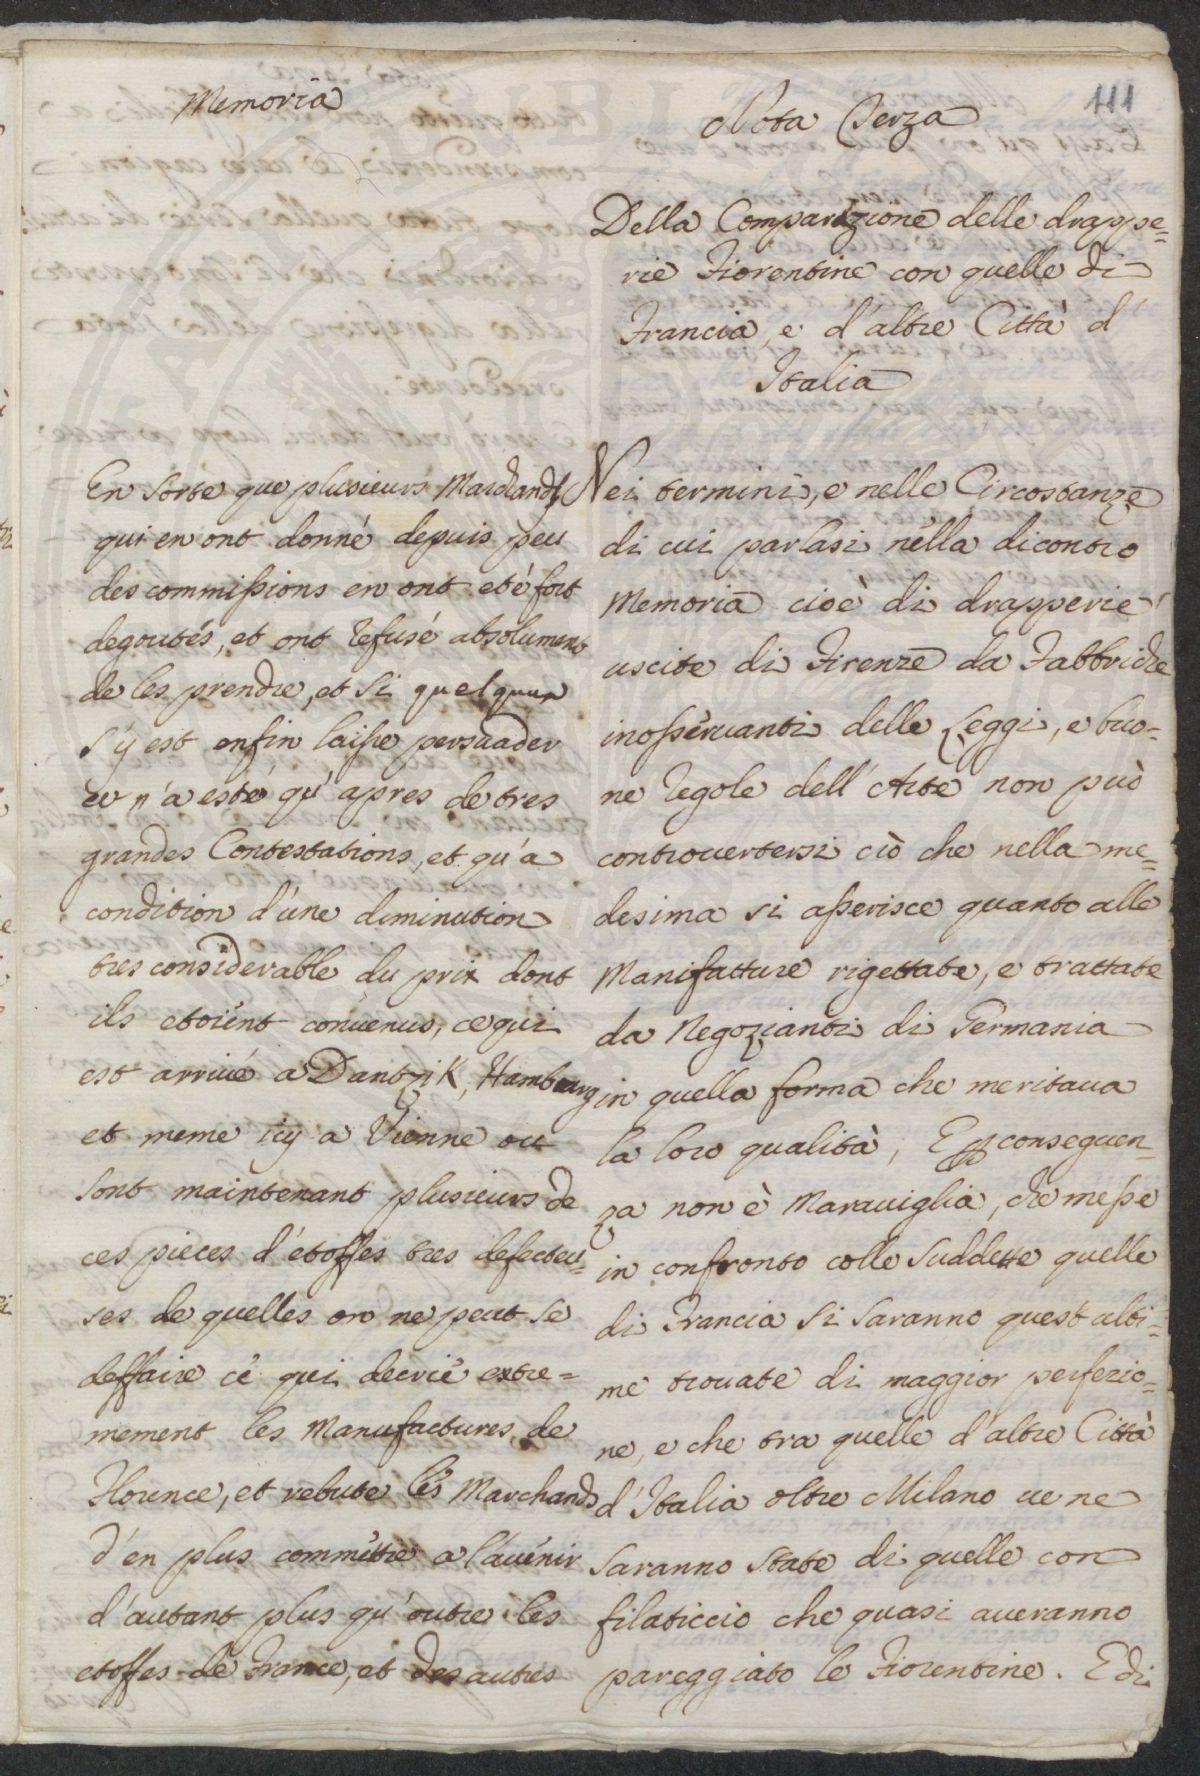 111
Memoria
En sorte que plusieurs Marchands
qui en ont donné depuis peu
des commissions en ont eté fort
degoutés, et ont refusé absolument
de les prendre, et si quelquun
s'y est enfin laissé persuader
ce n'a esté qu'apres de tres
grandes Contestations, et qu'a
condition d'une diminution
tres considerable du prix dont
ils etoient convenus, ce qui
est arrivé a Dantzik, Hambourg
et meme icy a Vienne ou
sont maintenant plusieurs de
ces pieces d'etoffes tres defecteu=
ses de quelles on ne peut se
deffaire ce qui decrie extre=
mement les Manufactures de
Florence, et rebute les Marchands
d'en plus commettre a l'avenir
d'autant plus qu'outre les
etoffes de France, et des autres
Nota Terza
Della Comparizione delle drappe=
rie Fiorentine con quelle di
Francia, e d'altre Città d'
Italia
Nei termini, e nelle Circostanze
di cui parlasi nella dicontro
Memoria cioè di drapperie
uscite di Firenze da Fabbriche
inosservanti delle Leggi, e buo=
ne regole dell'Arte non può
controvertersi ciò che nella me=
desima si asserisce quanto alle
Manifatture rigettate, e trattate
da Negozianti di Germania
in quella forma che meritava
la loro qualità, E conseguen=
za non è Maraviglia, che messe
in confronto colle suddette quelle
di Francia si saranno quest'ulti=
me trovate di maggior perfezio=
ne, e che tra quelle d'altre Città
d'Italia oltre Milano ve ne
saranno state di quelle con
filaticcio che quasi averanno
pareggiato le Fiorentine. E di